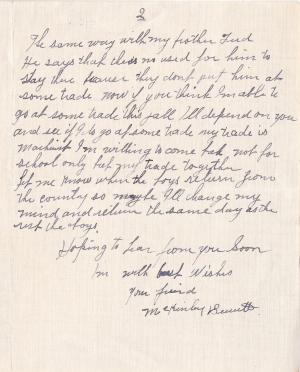 2
The same way with my brother Fred
He says that theres no used for him to
stay there because they dont put him at
some trade now if you think Im able to
go at some trade this fall I'll depend on you
and see if I to go at some trade my trade is
machinist Im willing to come back not for
school only but my trade together
let me know when the boys return from
the country so maybe I'll change my
mind and return the same day as the
rest the boys.
Hoping to hear from you Soon
Im with best Wishes
Your friend
McKinley